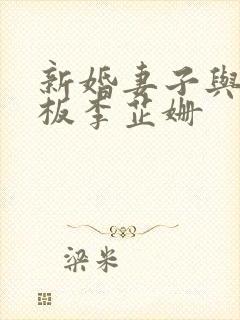 新婚妻子與
板李芷姍
梁米